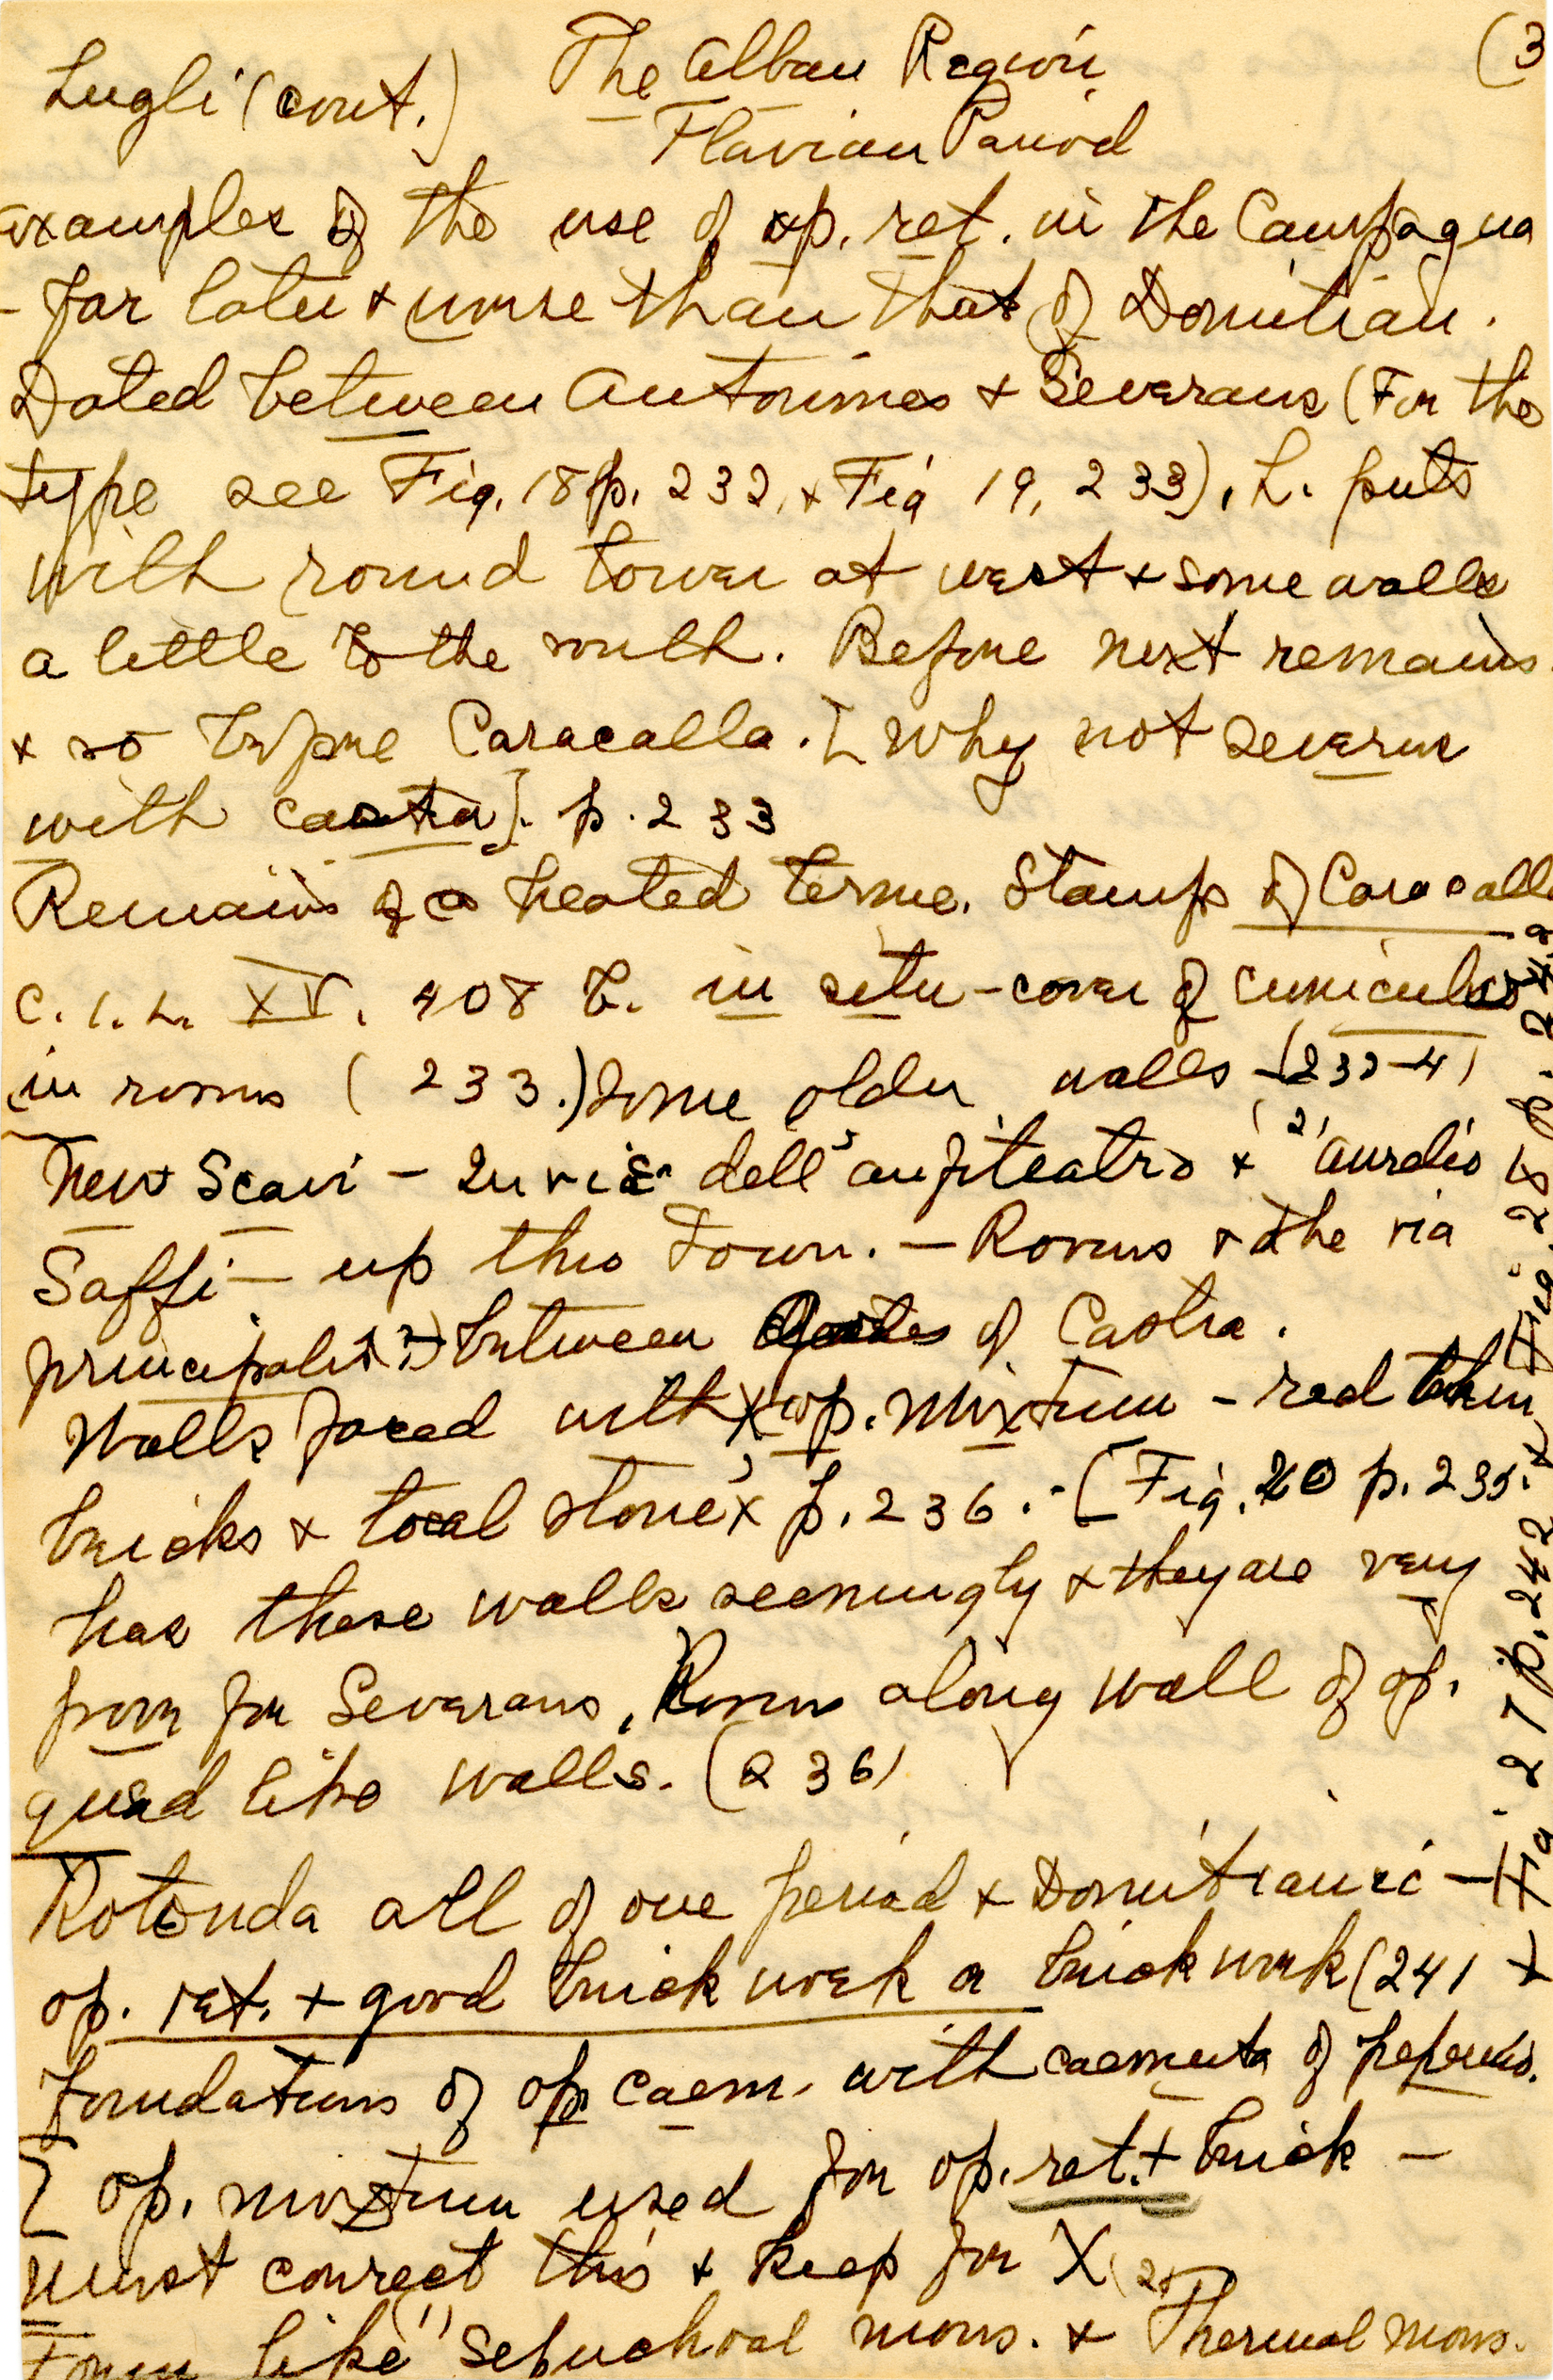 Lugli (cont.) The Alban Region (3
Flavian Period
Examples of the use of op. ret. in the Campagna
- far later + worse than that of Domitian.
Dated between Antonines + Severans (For the
type see Fig. 18 p. 232, + Fig 19, 233). L. puts
with round tower at west + some walls
a little to the south. Before next remains
+ so before Caracalla. [Why not Severus
with castra]. p. 233
Remains of a heated terme. Stamps of Caracalla
C.I.L. XV. 408 b. in situ - cover of cuniculus
in rooms (233.) Some older walls - (233-4)
New Scavi - In via dell' anfiteatro + (2) Aurelio
Saffi - up this town. - Rooms + the via
principalis (?) between Gates of Castra.
Walls faced with X op. mixtum - red thin
bricks + local stone X p. 236. - [Fig. 20 p. 235.
has these walls seemingly + they are very
poor for Severans. Rooms along wall of op.
quad like walls. (236)
Rotonda all of one period + Domitianic -
op. ret. + good brick work or brick work (241 +
Foundations of op. caem. with caementa of peperino.
[ op. mixtum used for op. ret. + brick -
must correct this + keep for X
Town like (1) Sepuchral mons. + (2) Thermal mons.
Fig 27 p. 242 + Fig. 28 p. 243